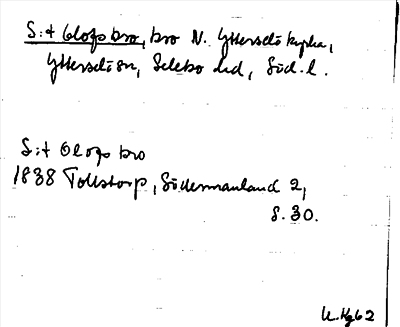 S:t Olofs bro, bro N. Ytterselö kyrka,
Ytterselö sn, Selebo hd, Söd. l.
S:t Olofs bro
1838 Tollstorp, Södermanland 2,
s. 30.